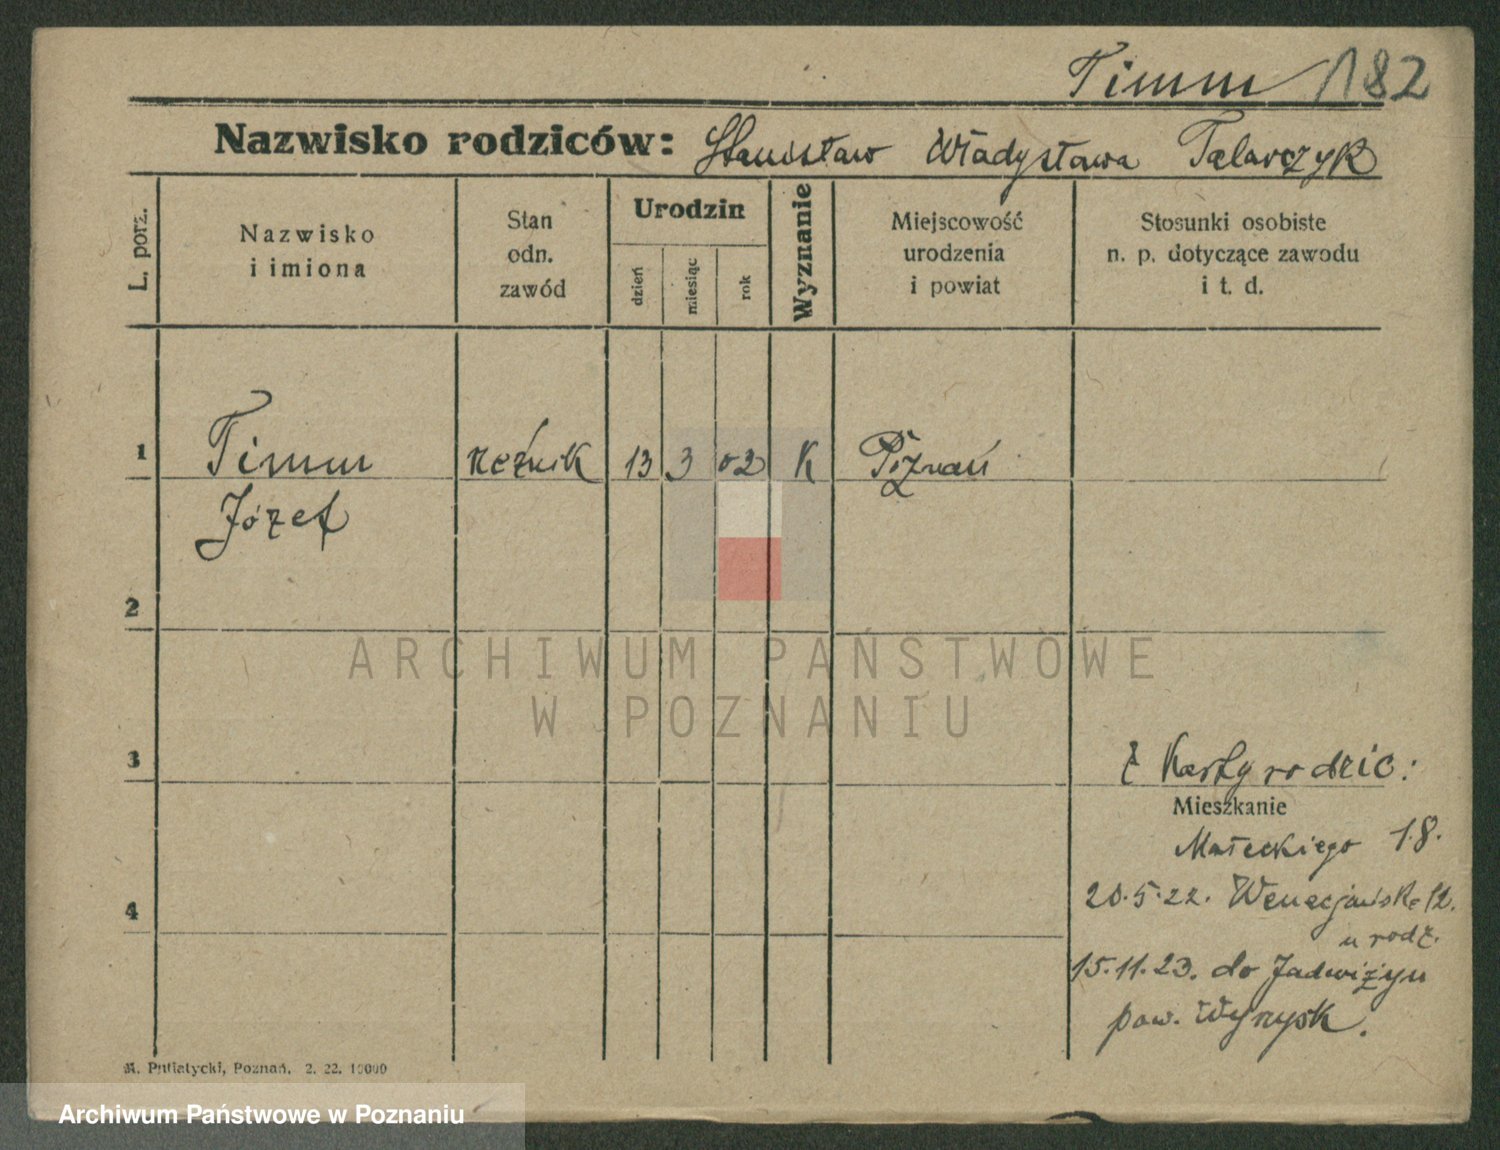 Timm 182
Nazwisko rodziców: Stanisław Władysława Talarczyk
L. porz.
Nazwisko
i imiona
Stan
odn.
zawód
Urodzin
dzień
miesiąc
rok
Wyznanie
Miejscowość
urodzenia
i powiat
Stosunki osobiste
n. p. dotyczące zawodu
i t. d.
1 Timm rzeźnik 13 3 02 K Poznań
Józef
2
ARCHIWUM PAŃSTWOWE
W POZNANIU
3
z Karty rodzic:
Mieszkanie
Małeckiego 18.
4
20.5.22. Wenecjańska 12.
u rodz.
15.11.23. do Jadwiżyn
pow. Wyrzysk.
M. Putiatycki, Poznań. 2. 22. 10000
Archiwum Państwowe w Poznaniu